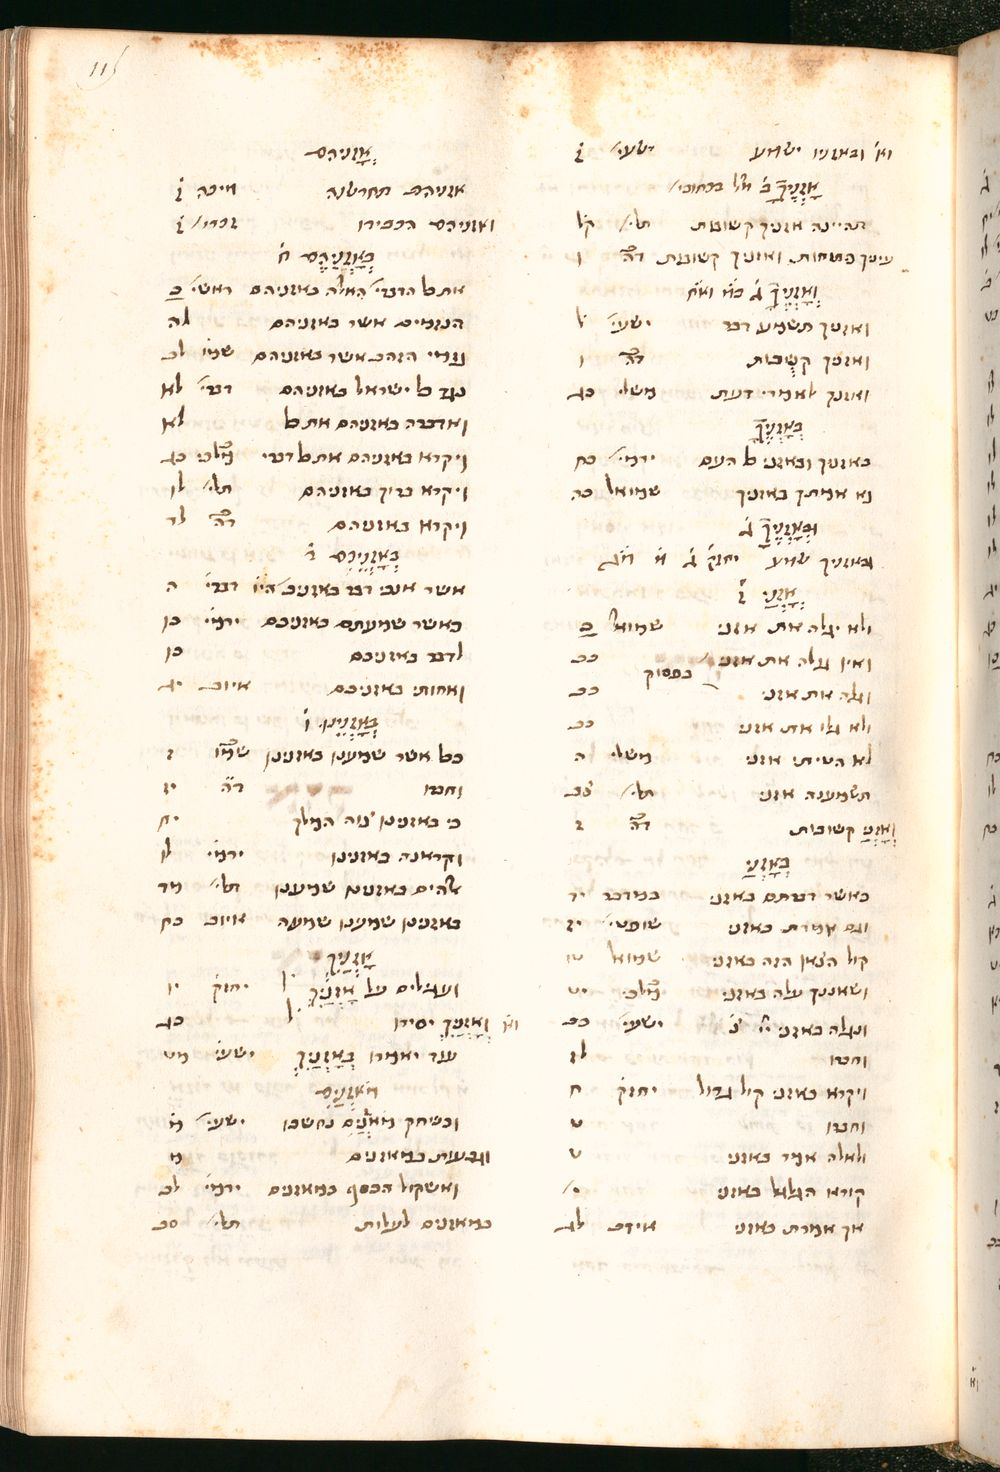 115
וא' ובאזניו ישמע ישעי' ז
אָזְנֶיךָ ב' וכל בכתובי'
תהיינה אזניך קשובות תלי' קל
עיניך פתוחות ואזניך קשובות דה ו
וְאָזְנֶיךָ ג'
ואזניך תשמע דבר ישעי' ל
ואזניך קשובות דה ו
ואזנך לאמרי דעת משלי כג
בְאָזְנֶיךָ
באזניך ובאזני כל העם ירמי' כח
נא אמתך באזניך שמואל כה
וּבְאָזְנֶיךָ ג
ובאזניך שמע יחזק' ג מ
אָזְנִי ז
ולא יגלה את אזני שמואל כ
ואין גלה את אזני כב
בפסוק
וגלה את אזני כב
ולא גלו את אזני כב
לא הטיתי אזני משלי ה
תשמענה אזני תלי' צב
וְאָזְנַי קשובות דה ז
בְאָזְנַי
כאשר דברתם באזני במדבר יד
וגם אמרת באזני שופטי' יז
קול הצאן הזה באזני שמואל טו
ושאננך עלה באזני מלכי' יט
ונגלה באזני יי' צ' ישעי' כב
וחברו לז
ויקרא באזני קול גדול יחזק' ח
וחברו ט
ולאלה אמר באזני ט
קורא הגלגל באזני י'
אך אמרת באזני איוב לג
אָזְנֵיהֶם
אזניהם תחרשנה מיכה ז
ואזניהם הכבידו זכרי' ז
בְאָזְנֵיהֶם ח
את כל הדברי' האלה באזניהם ראשי' כ
הנזמים אשר באזניהם לה
נזמי הזהב אשר באזניהם שמו' לב
נגד כל ישראל באזניהם דברי' לא
ואדברה באזניהם את כל לא
ויקרא באזניהם את כל דברי מלכי' כג
ויקרא ברוך באזניהם לו
ויקרא באזניהם דה לד
בְאָזְנֵיכֶם ד
אשר אנכי דבר באזניכם היו' דברי' ה
כאשר שמעתם באזניכם ירמי' כו
לדבר באזניכם כו
ואחותי באזניכם איוב יג
בְאָזְנֵינוּ ו
ככל אשר שמענו באזנינו
וחברו דה יז
כי באזנינו צוה המלך יח
וקראנה באזנינו ירמי' לו
אלהים באזנינו שמענו תלי' מד
באזנינו שמענו שמעה איוב כח
אָזְנַיִךְ
ועגילים על אָזְנַיִךְ ל' יחזק' יו
וא' וְאָזְנַיִךְ יסירו ל' כג
עוד יאמרו בְאָזְנַיִךְ ישעי' מט
מֹאזְנַיִם
וכשחק מאזנים נחשבו ישעי' מ
וגבעות במאזנים מ
ואשקול הכסף במאזנים ירמי' לב
במאזנים לעלות תלי' סב